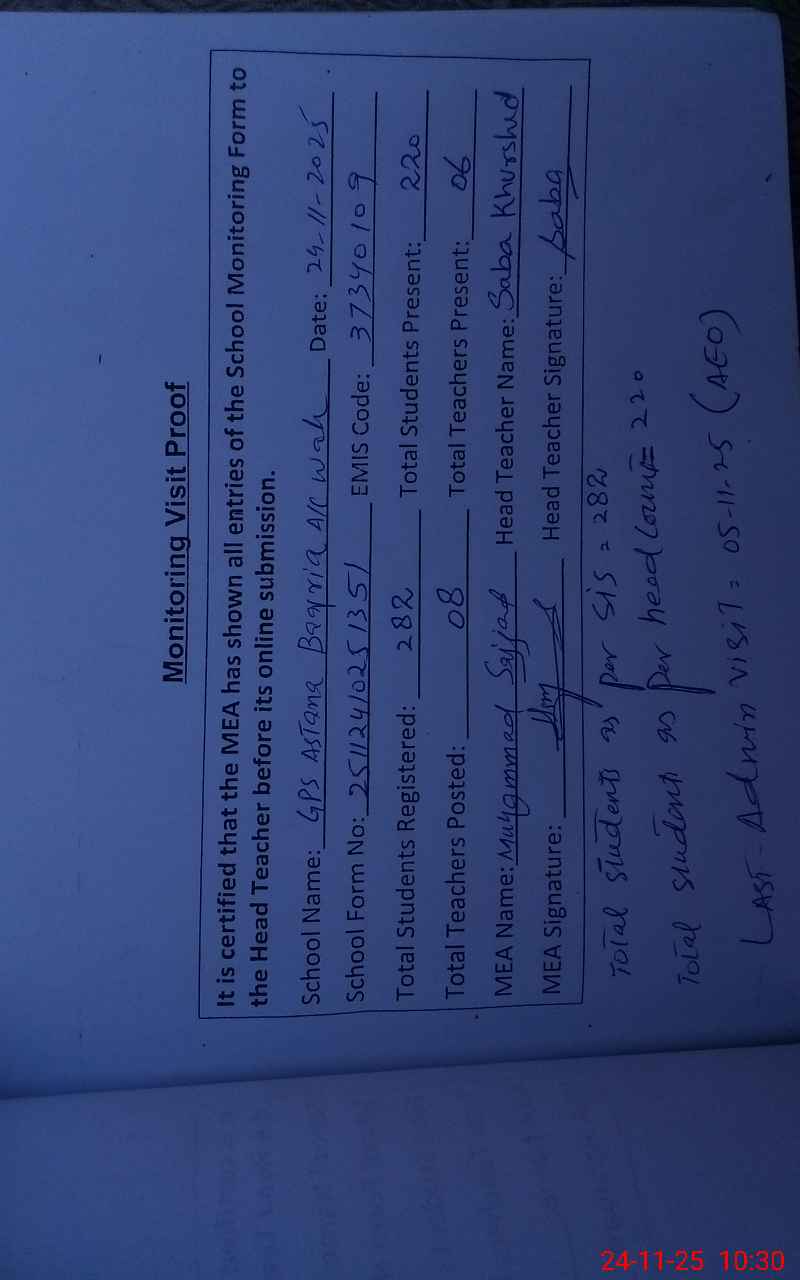 Monitoring Visit Proof
It is certified that the MEA has shown all entries of the School Monitoring Form to
the Head Teacher before its online submission.
School Name: GPS Astana Baqria A/C Wah Date: 24-11-2025
School Form No: 25112410251351 EMIS Code: 37340109
Total Students Registered: 282 Total Students Present: 220
Total Teachers Posted: 08 Total Teachers Present: 06
MEA Name: Muhammad Sajjad Head Teacher Name: Saba Khurshid
MEA Signature: Head Teacher Signature: Saba
Total students as per SIS = 282
Total students as per head Count = 220
Last - Admin visit = 05-11-25 (AEO)
24-11-25 10:30